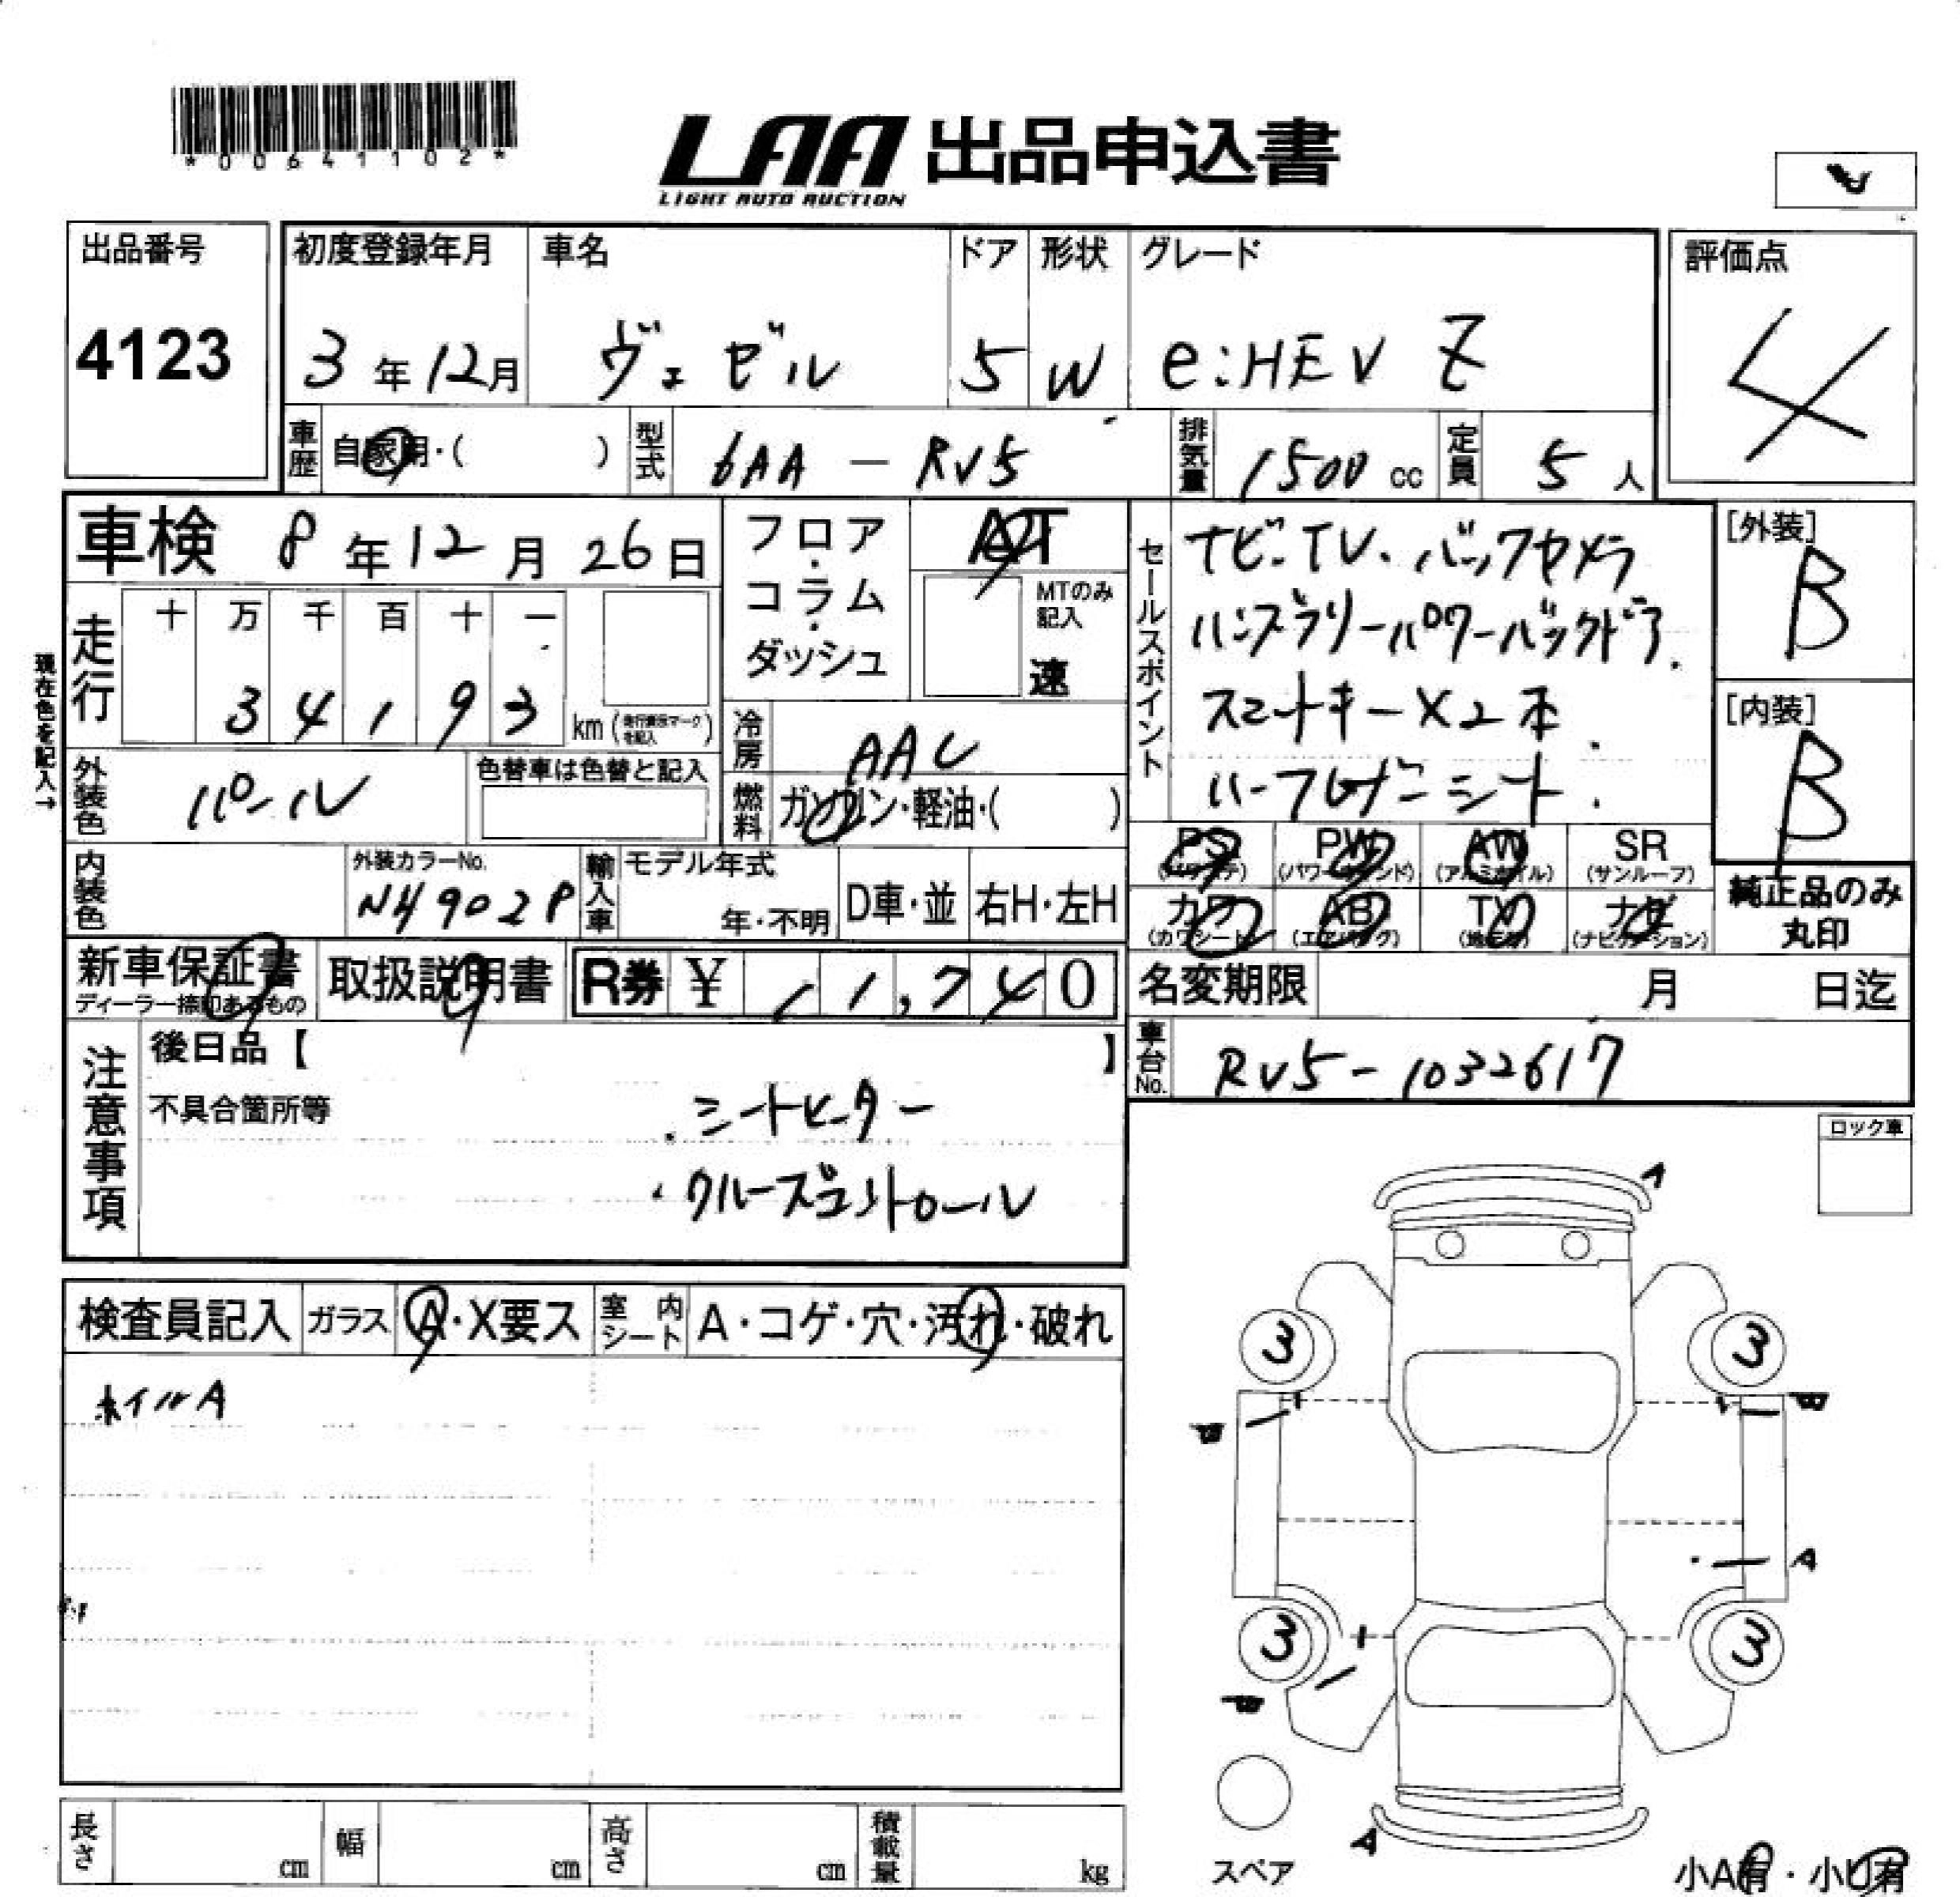 *00641102*
LAA 出品申込書
LIGHT AUTO AUCTION
出品番号 初度登録年月 車名 ドア 形状 グレード 評価点
4123 3年12月 ヴェゼル 5 W e:HEV Z 4
車歴 自家用・( ) 型式 6AA - RV5 排気量 1500cc 定員 5人
車検 8年12月26日 フロア・コラム・ダッシュ AT
MTのみ記入 速
セールスポイント ナビ・TV・バックカメラ
ハンズフリーパワーバックドア
スマートキー×2本
ハーフレザーシート
[外装] B
[内装] B
現在色を記入→
走行 十 万 千 百 十 一
3 4 1 9 3 km (走行表示マークを記入)
冷房 AAC
外装色 パール 色替車は色替と記入 燃料 ガソリン・軽油・( )
PS (パワステ) PW (パワーウィンド) AW (アルミホイル) SR (サンルーフ)
カワ (カワシート) AB (エアバック) TV (地デジ) ナビ (ナビゲーション)
純正品のみ丸印
内装色 外装カラーNo. NH902P 輸入車 モデル年式 年・不明 D車・並 右H・左H
新車保証書 ディーラー捺印あるもの 取扱説明書 R券 ¥ 11,740 名変期限 月 日迄
注意事項 後日品【 】
車台No. RV5-1032617
不具合箇所等 ・シートヒーター
・クルーズコントロール
ロック車
検査員記入 ガラス A・X要ス 室内シート A・コゲ・穴・汚れ・破れ
ホイルA
A
3 3
A
3 3
A
スペア
長さ cm 幅 cm 高さ cm 積載量 kg
小A有・小U有